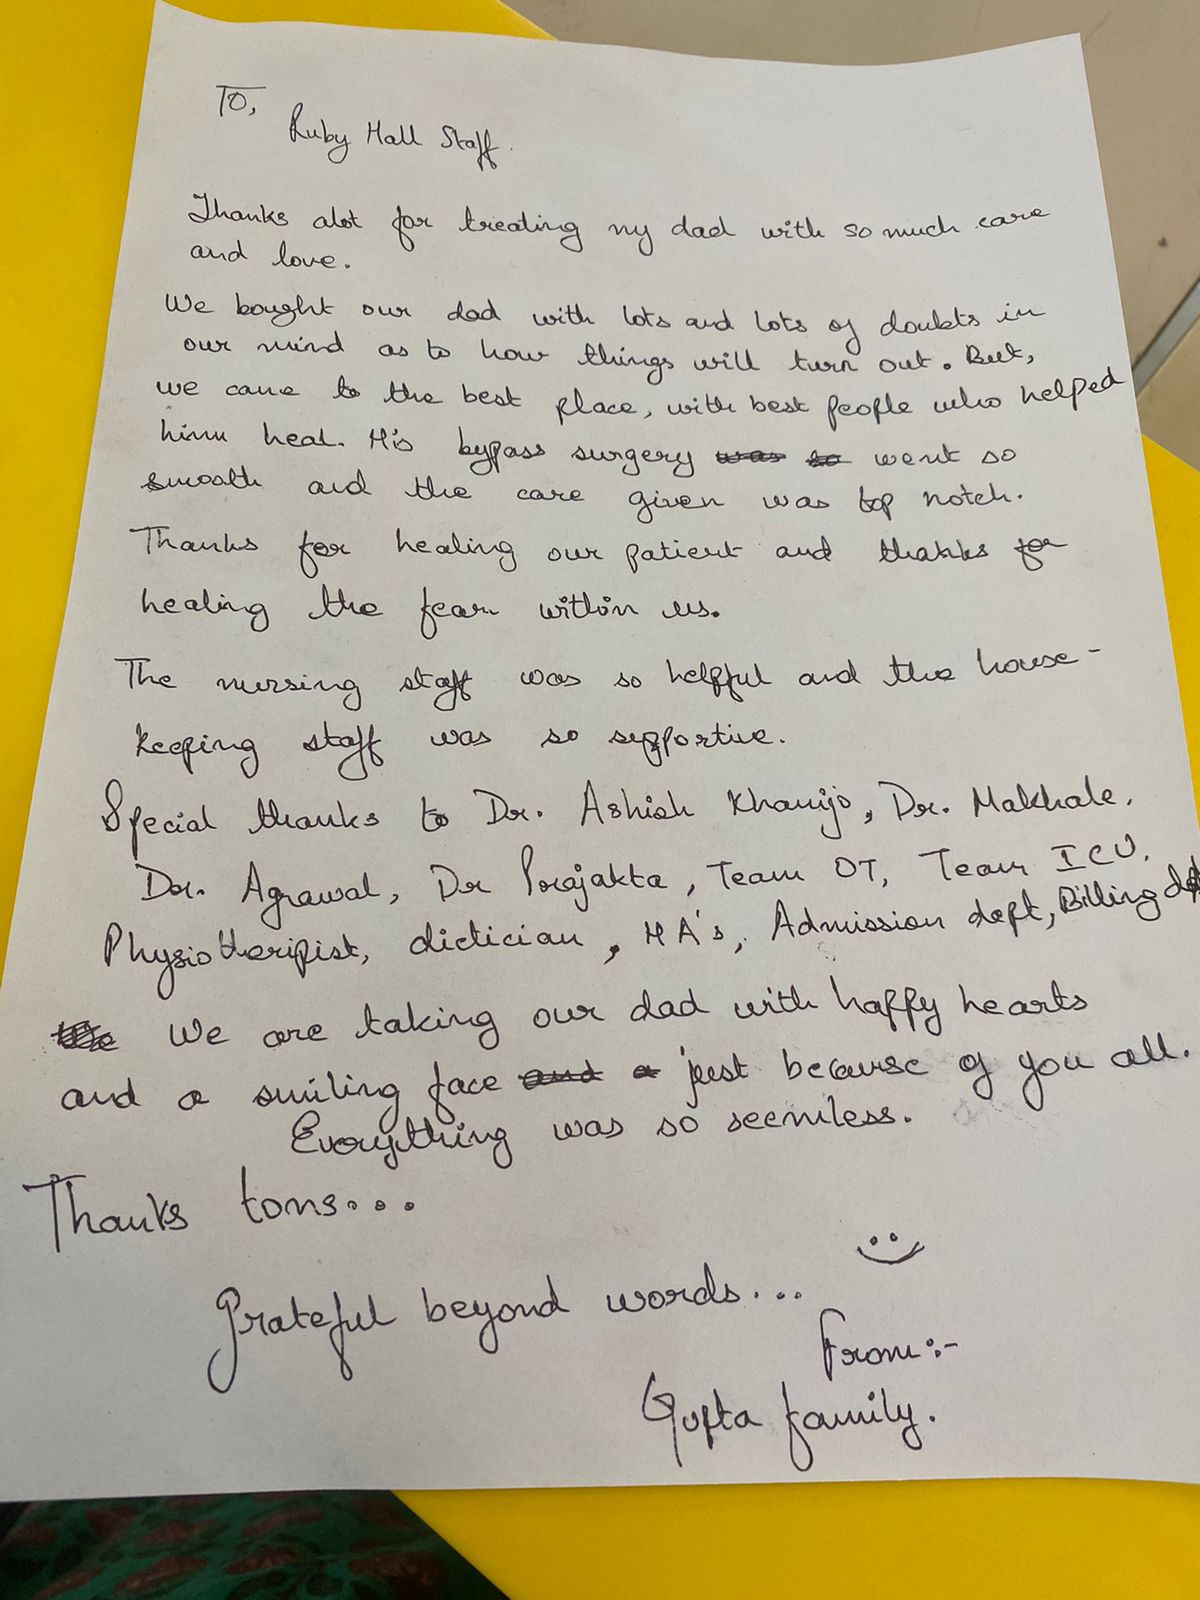 To,
Ruby Hall Staff.
Thanks alot for treating my dad with so much care
and love.
We bought our dad with lots and lots of doubts in
our mind as to how things will turn out. But,
we came to the best place, with best people who helped
him heal. His bypass surgery was so went so
smooth and the care given was top notch.
Thanks for healing our patient and thanks for
healing the fear within us.
The nursing staff was so helpful and the house-
keeping staff was so supportive.
Special thanks to Dr. Ashish Khanijo, Dr. Makhale,
Dr. Agrawal, Dr Prajakta, Team OT, Team ICU,
Physiotheripist, dietician, MA's, Admission dept, Billing dept
We are taking our dad with happy hearts
and a smiling face and a just because of you all.
Everything was so seemless.
Thanks tons...
Grateful beyond words...
From:-
Gupta family.